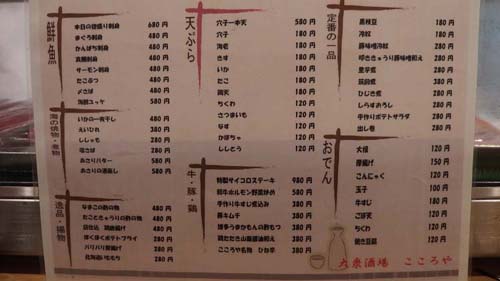 鮮魚
本日の盛盛り刺身 680円
まぐろ刺身 480円
かんぱち刺身 480円
真鯛刺身 480円
サーモン刺身 480円
たこぶつ 480円
〆さば 480円
海鮮ユッケ 580円
海の焼物・煮物
いかの一夜干し 480円
えいひれ 380円
ししゃも 280円
塩さば 280円
あさりバター 580円
あさりの酒蒸し 580円
逸品・揚物
なまこの酢の物 480円
たこときゅうりの酢の物 480円
ほくほくポテトフライ 280円
パリパリ麺揚げ 280円
北海道いももち 280円
天ぷら
穴子一本天 580円
穴子 180円
海老 180円
きす 180円
いか 180円
たこ 180円
鶏天 180円
ちくわ 120円
さつまいも 120円
なす 120円
かぼちゃ 120円
ししとう 120円
牛・豚・鶏
特製サイコロステーキ 980円
和牛ホルモン野菜炒め 580円
手作り牛すじ煮込み 380円
豚キムチ 380円
博多うまかもんの酢もつ 380円
鶏たたき山葵醤油和え 380円
こころや名物 ひね辛 380円
定番の一品
黒枝豆 180円
冷奴 180円
豚味噌冷奴 280円
叩ききゅうり豚味噌和え 280円
里芋煮 280円
筑前煮 280円
ひじき煮 280円
しらすおろし 280円
手作りポテトサラダ 280円
出し巻 280円
おでん
大根 120円
厚揚げ 150円
こんにゃく 120円
玉子 100円
牛すじ 150円
ごぼ天 120円
ちくわ 120円
焼き豆腐 120円
大衆酒場 こころや